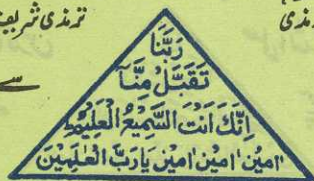 ترمذی شریف
رَبَّنَا
تَقَبَّلْ مِنَّآ
اِنَّكَ اَنْتَ السَّمِيْعُ الْعَلِيْمُ
اٰمِيْن اٰمِيْن اٰمِيْن يَارَبَّ الْعٰلَمِيْنَ
سے